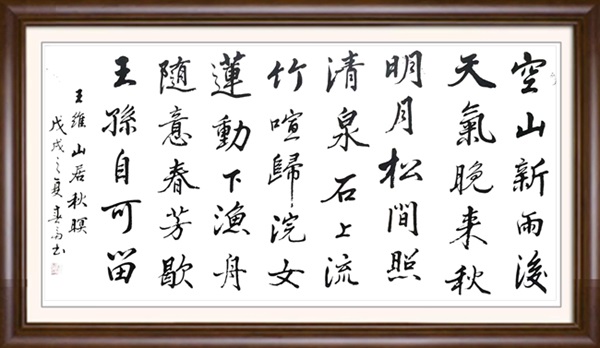 空山新雨後
天氣晚来秋
明月松間照
清泉石上流
竹喧歸浣女
蓮動下漁舟
随意春芳歇
王孫自可留
王維山居秋暝
戊戌之夏